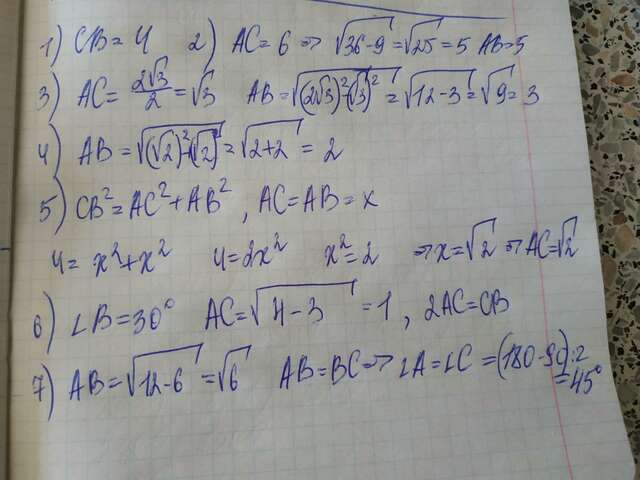 1) CB = 4 2) AC = 6 ⇒ √36-9 = √25 = 5 AB=5
3) AC = 2√3/2 = √3 AB = √(2√3)²-(√3)² = √12-3 = √9 = 3
4) AB = √(√2)²+(√2)² = √2+2 = 2
5) CB² = AC² + AB², AC = AB = x
4 = x² + x² 4 = 2x² x² = 2 ⇒ x = √2 ⇒ AC = √2
6) ∠B = 30° AC = √4-3 = 1, 2AC = CB
7) AB = √12-6 = √6 AB = BC ⇒ ∠A = ∠C = (180-90):2
= 45°